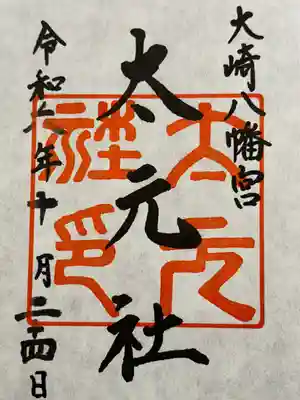 大崎八幡宮
太元社
太元社印
令和六年十月二四日